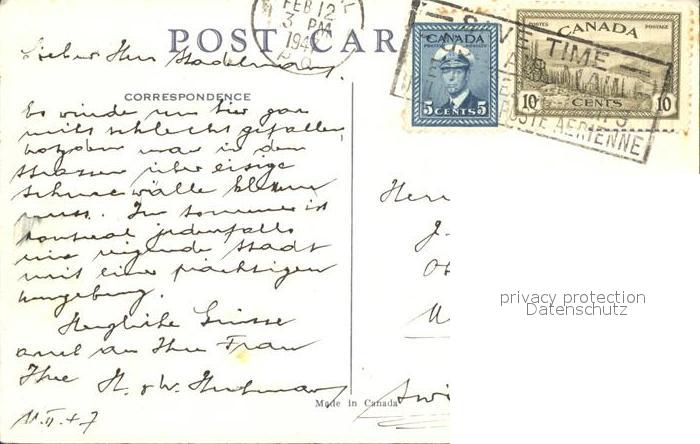 FEB 12
3 PM
194
P.Q.
POST CAR
SAVE TIME
POSTE AERIENNE
CANADA
POSTES POSTAGE
5 CENTS 5
CANADA
POSTES POSTAGE
10 CENTS 10
CORRESPONDENCE
Lieber Herr
Es würde uns hier gar
nicht schlecht gefallen,
trotzdem man in den
Strassen über eisige
Schneewälle klettern
muss. Im Sommer ist
Montreal jedenfalls
eine reizende Stadt
mit einer prächtigen
Umgebung.
Herzliche Grüsse
auch an Ihre Frau
Ihre H. & W.
11.II.47
Herr
J.
Swi
Made in Canada
privacy protection
Datenschutz